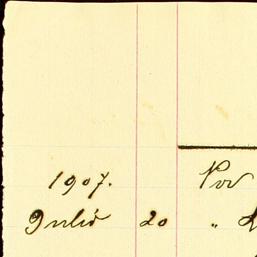 1907. Por
Julio 20 "